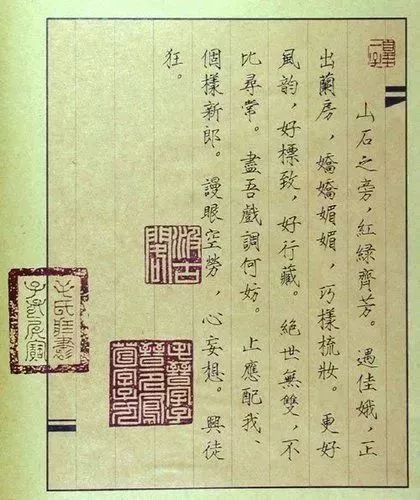 山石之旁，紅緑齊芳。遇佳娥，正
出蘭房，嬌嬌媚媚，巧樣梳妝。更好
風韵，好標致，好行藏。絕世無雙，不
比尋常。盡吾戲調何妨。止應配我、
個樣新郎。謾眼空勞，心妄想。興徒
狂。